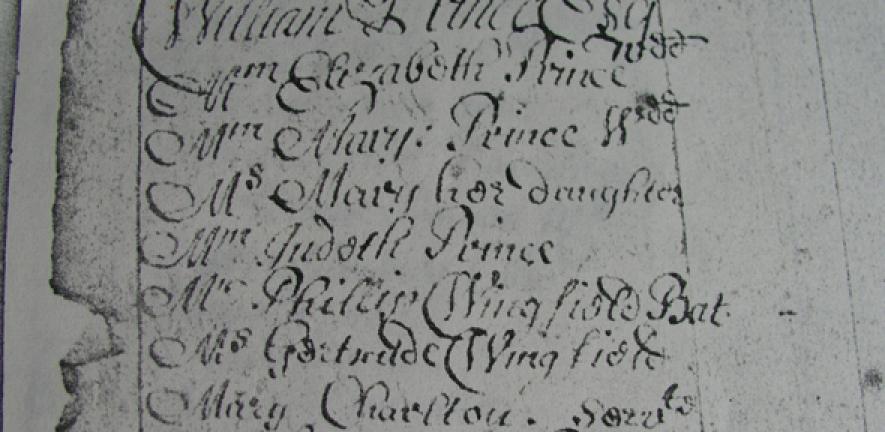 William Prince Esq
Mm Elizabeth Prince Wdd
Mm Mary: Prince Wdd
Ms Mary her daughter
Mm Judeth Prince
Mr Phillip Wingfield Bat -
Ms Gertrude Wingfield
Mary Charlton. Servts